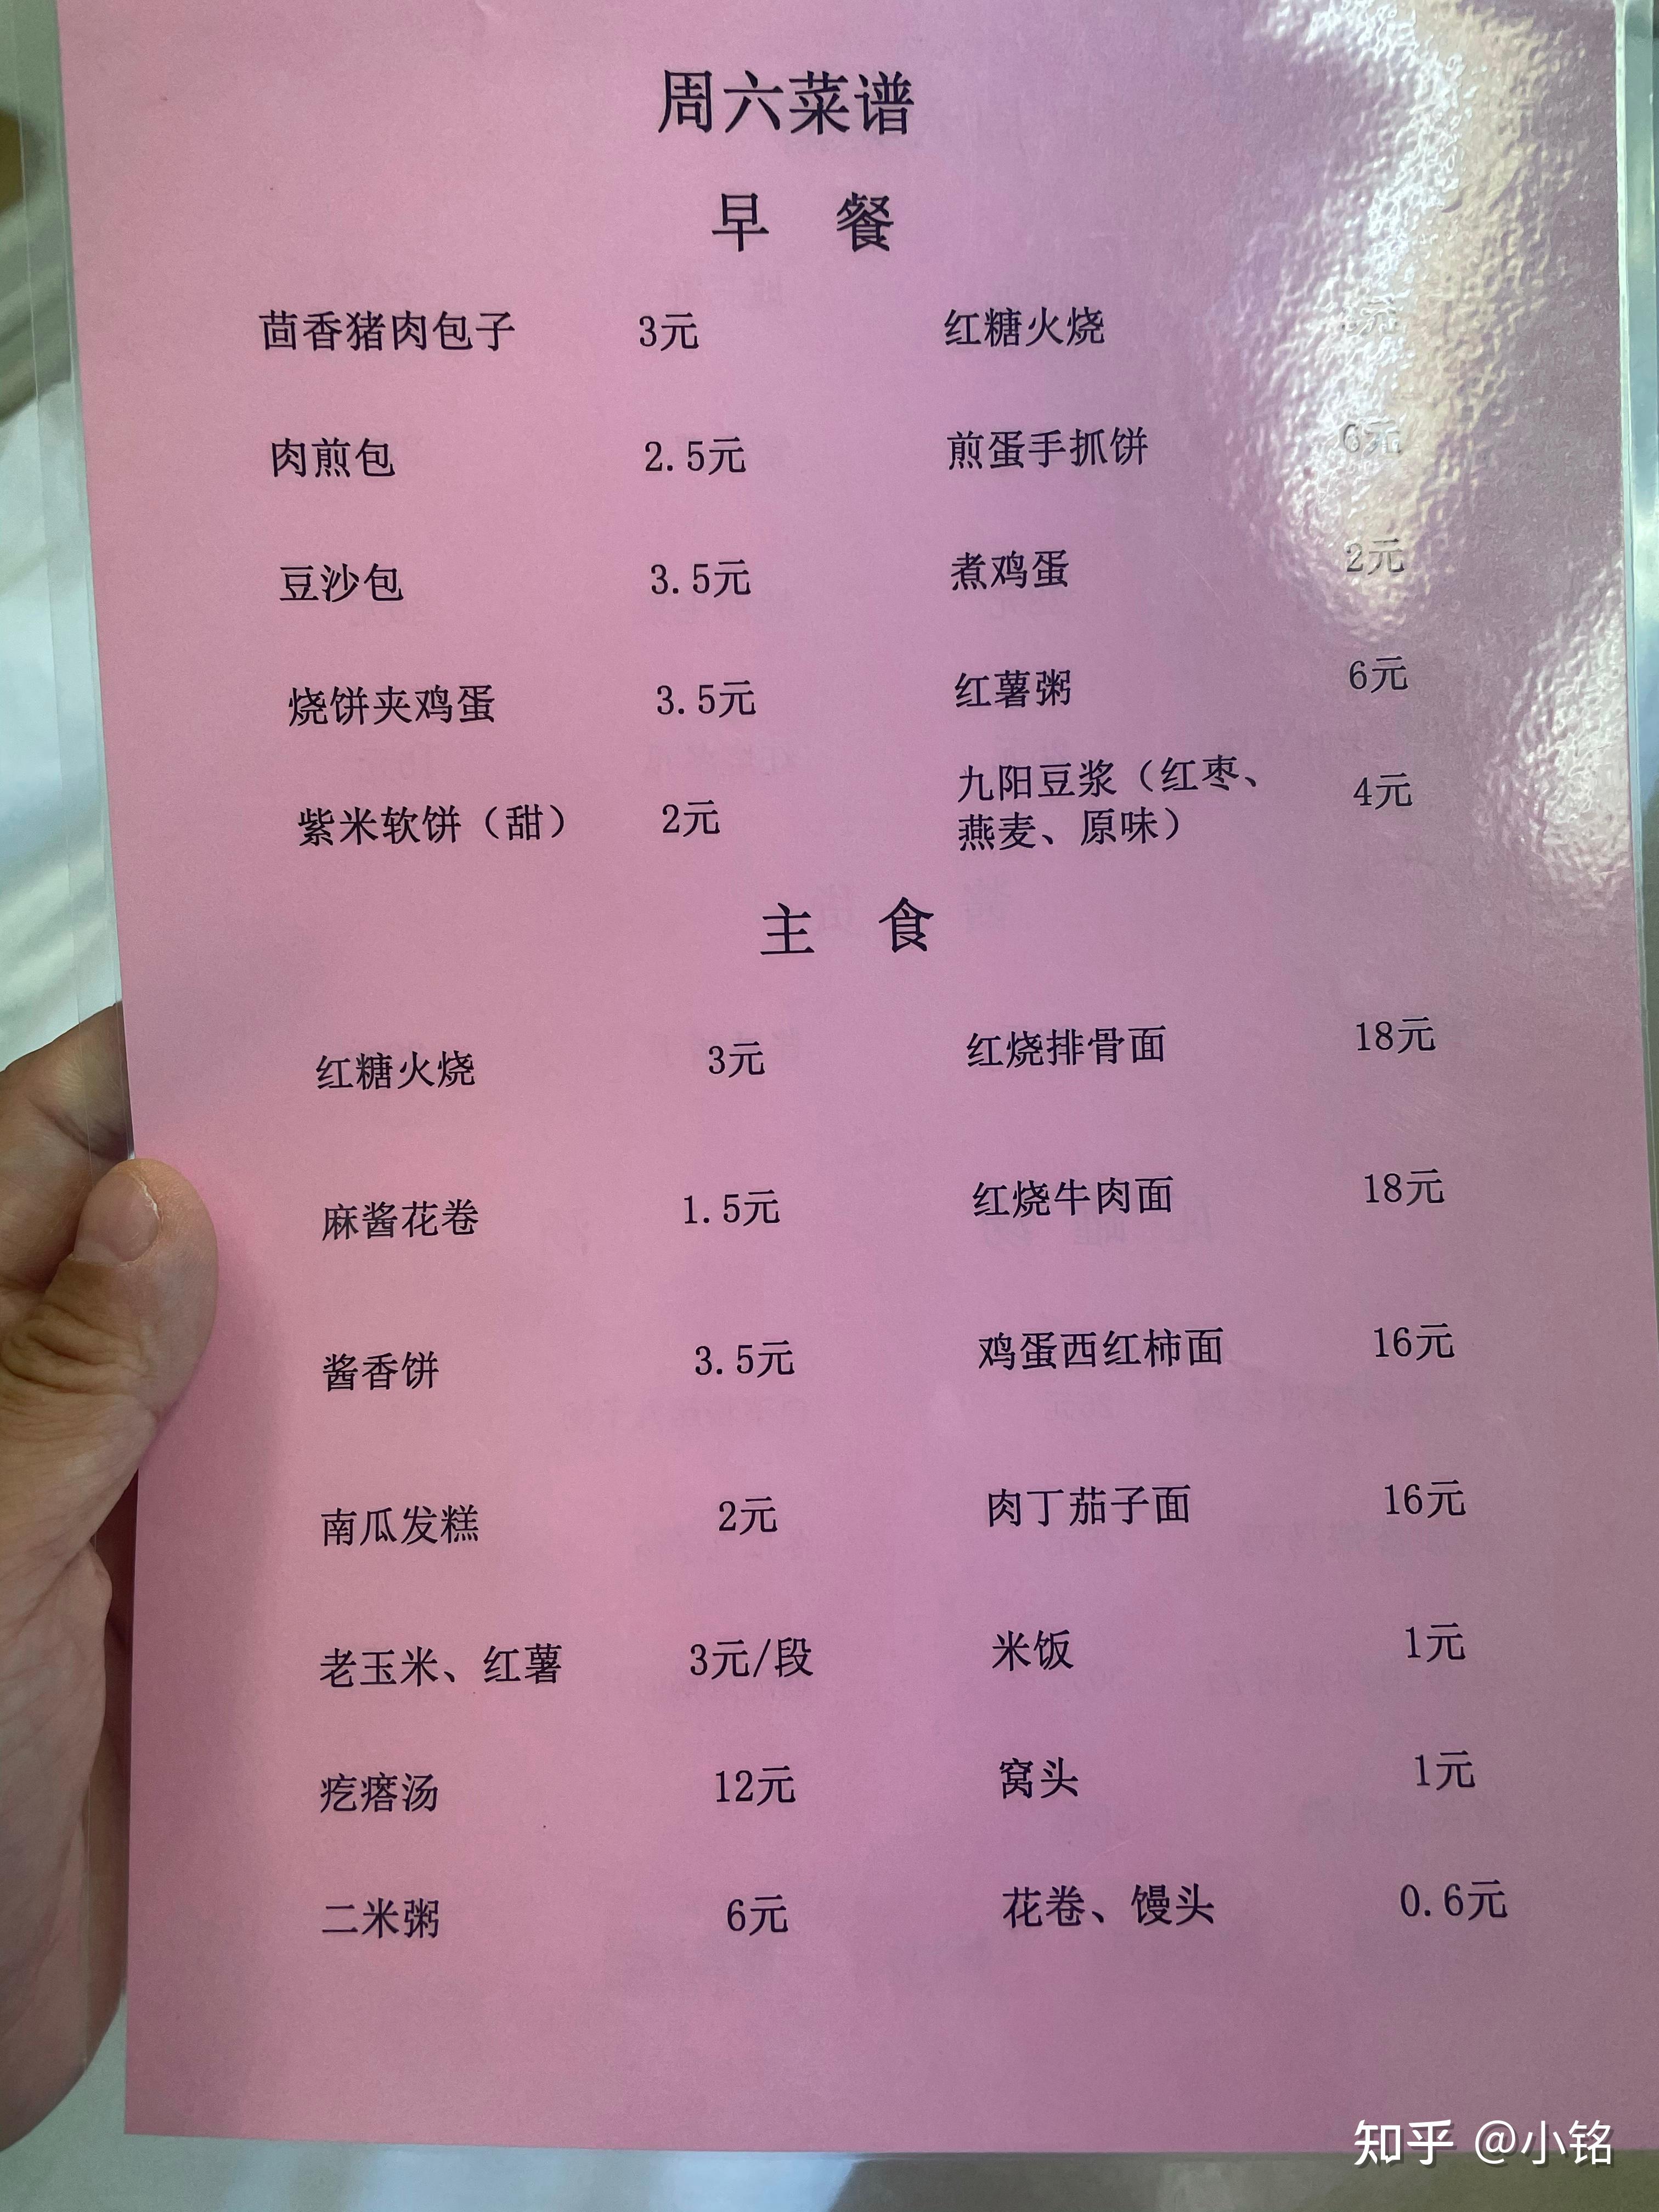 周六菜谱
早 餐
茴香猪肉包子 3元 红糖火烧 元
肉煎包 2.5元 煎蛋手抓饼 6元
豆沙包 3.5元 煮鸡蛋 2元
烧饼夹鸡蛋 3.5元 红薯粥 6元
紫米软饼（甜） 2元 九阳豆浆（红枣、 4元
燕麦、原味）
主 食
红糖火烧 3元 红烧排骨面 18元
麻酱花卷 1.5元 红烧牛肉面 18元
酱香饼 3.5元 鸡蛋西红柿面 16元
南瓜发糕 2元 肉丁茄子面 16元
老玉米、红薯 3元/段 米饭 1元
疙瘩汤 12元 窝头 1元
二米粥 6元 花卷、馒头 0.6元
知乎 @小铭